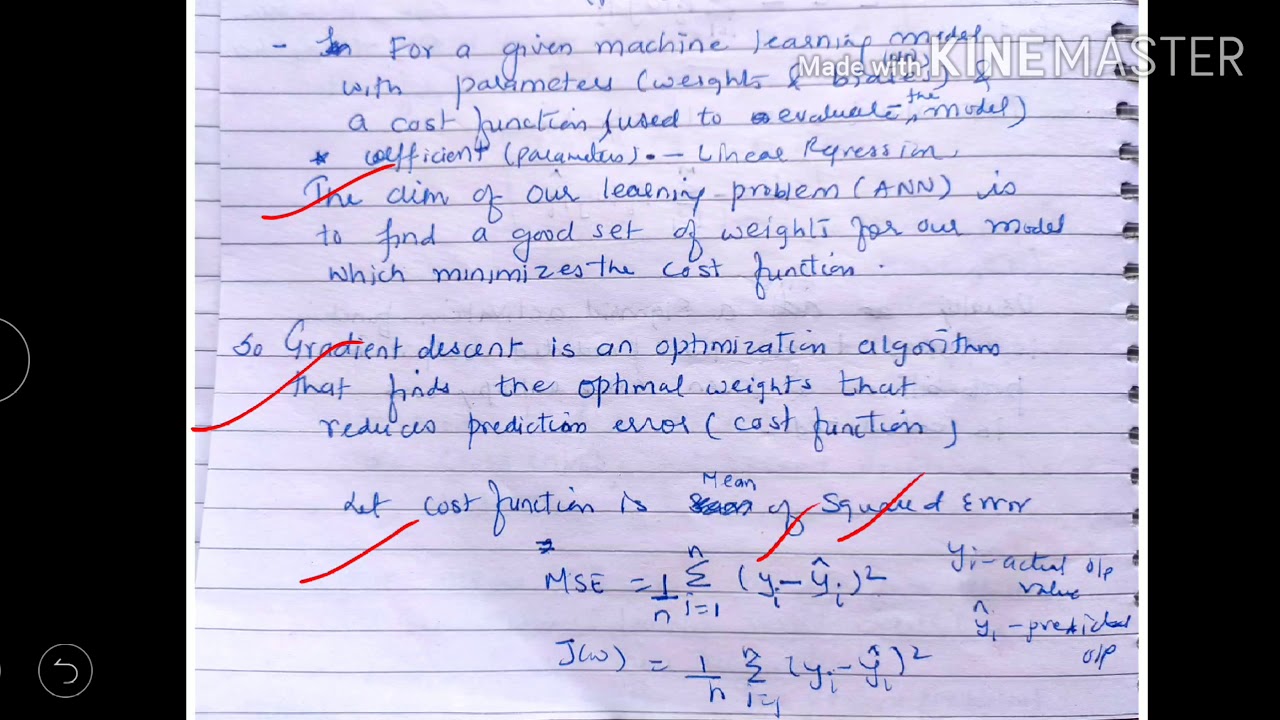 - For a given machine learning model
Made with KINEMASTER
with parameters (weights & biases) &
a cost function (used to evaluate the model)
* coefficient (parameters). - Linear Regression.
The aim of our learning problem (ANN) is
to find a good set of weights for our model
which minimizes the cost function.
So Gradient descent is an optimization algorithm
that finds the optimal weights that
reduces prediction error (cost function)
Let cost function is Mean of Squared Error
MSE = 1/n Σ i=1 n (yi - ŷi)²
yi - actual o/p value
ŷi - predicted o/p
J(w) = 1/n Σ i=1 n (yi - ŷi)²